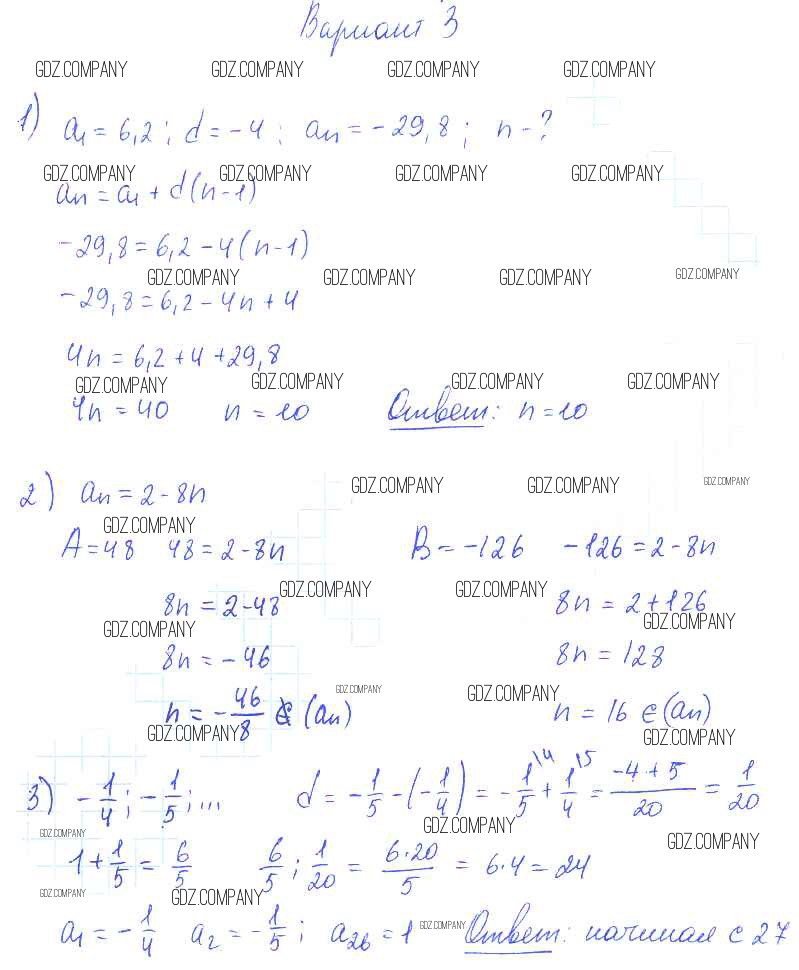 Вариант 3
GDZ.COMPANY GDZ.COMPANY GDZ.COMPANY GDZ.COMPANY
1) a₁ = 6,2 ; d = -4 ; aₙ = -29,8 ; n - ?
GDZ.COMPANY GDZ.COMPANY GDZ.COMPANY GDZ.COMPANY
aₙ = a₁ + d(n-1)
-29,8 = 6,2 - 4(n-1)
GDZ.COMPANY GDZ.COMPANY GDZ.COMPANY GDZ.COMPANY
-29,8 = 6,2 - 4n + 4
4n = 6,2 + 4 + 29,8
GDZ.COMPANY GDZ.COMPANY GDZ.COMPANY GDZ.COMPANY
4n = 40 n = 10 Ответ: n = 10
GDZ.COMPANY GDZ.COMPANY GDZ.COMPANY
2) aₙ = 2 - 8n
GDZ.COMPANY
A = 48 48 = 2 - 8n B = -126 -126 = 2 - 8n
GDZ.COMPANY GDZ.COMPANY
8n = 2 - 48 8n = 2 + 126
GDZ.COMPANY GDZ.COMPANY
8n = -46 8n = 128
GDZ.COMPANY GDZ.COMPANY
n = -46/8 ∉ (aₙ) n = 16 ∈ (aₙ)
GDZ.COMPANY GDZ.COMPANY
3) -1/4 ; -1/5 ; ... d = -1/5 - (-1/4) = -1/5\4 + 1/4\5 = (-4 + 5)/20 = 1/20
GDZ.COMPANY GDZ.COMPANY GDZ.COMPANY
1 + 1/5 = 6/5 6/5 : 1/20 = 6·20/5 = 6·4 = 24
GDZ.COMPANY GDZ.COMPANY
a₁ = -1/4 a₂ = -1/5 ; a₂₆ = 1 GDZ.COMPANY Ответ: начиная с 27